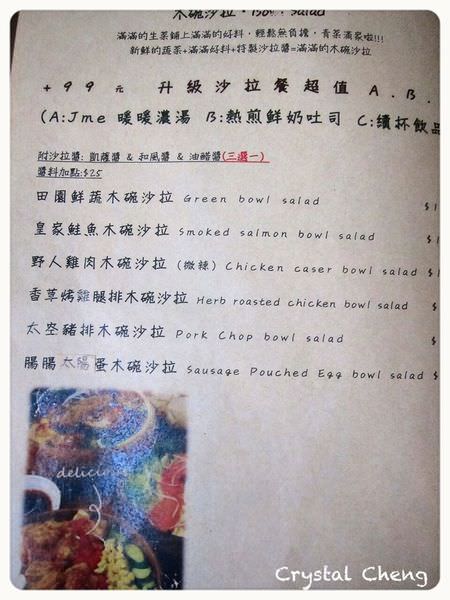 木碗沙拉・Bowl salad
滿滿的生菜鋪上滿滿的好料，輕鬆無負擔，青菜滿家啦!!!
新鮮的蔬菜+滿滿好料+特製沙拉醬=滿滿的木碗沙拉
+99元 升級沙拉餐超值 A.B.
(A:Jme 暖暖濃湯 B:熱煎鮮奶吐司 C:續杯飲品
附沙拉醬: 凱薩醬 & 和風醬 & 油醋醬(三選一)
醬料加點:$25
田園鮮蔬木碗沙拉 Green bowl salad $1
皇家鮭魚木碗沙拉 Smoked salmon bowl salad $1
野人雞肉木碗沙拉 (微辣) Chicken caser bowl salad $1
香草烤雞腿排木碗沙拉 Herb roasted chicken bowl salad $
太空豬排木碗沙拉 Pork Chop bowl salad $
腸腸太陽蛋木碗沙拉 Sausage Pouched Egg bowl salad $
delicious
Crystal Cheng